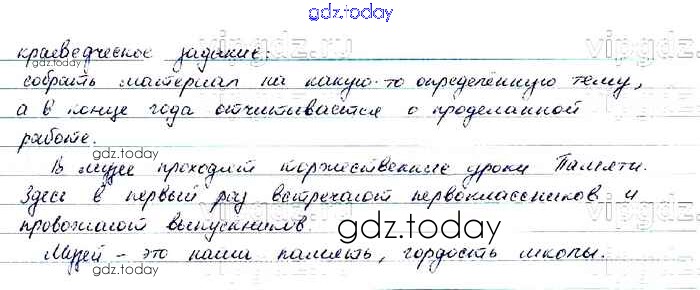 gdz.today
краеведческое задание:
собрать материал на какую-то определённую тему,
а в конце года отчитывается о проделанной
gdz.today
работе.
В музее проходит торжественные уроки Памяти.
Здесь в первый раз встречают первоклассников и
провожают выпускников.
gdz.today
Музей - это наша память, гордость школы.
gdz.today
gdz.today
vipgdz.ru